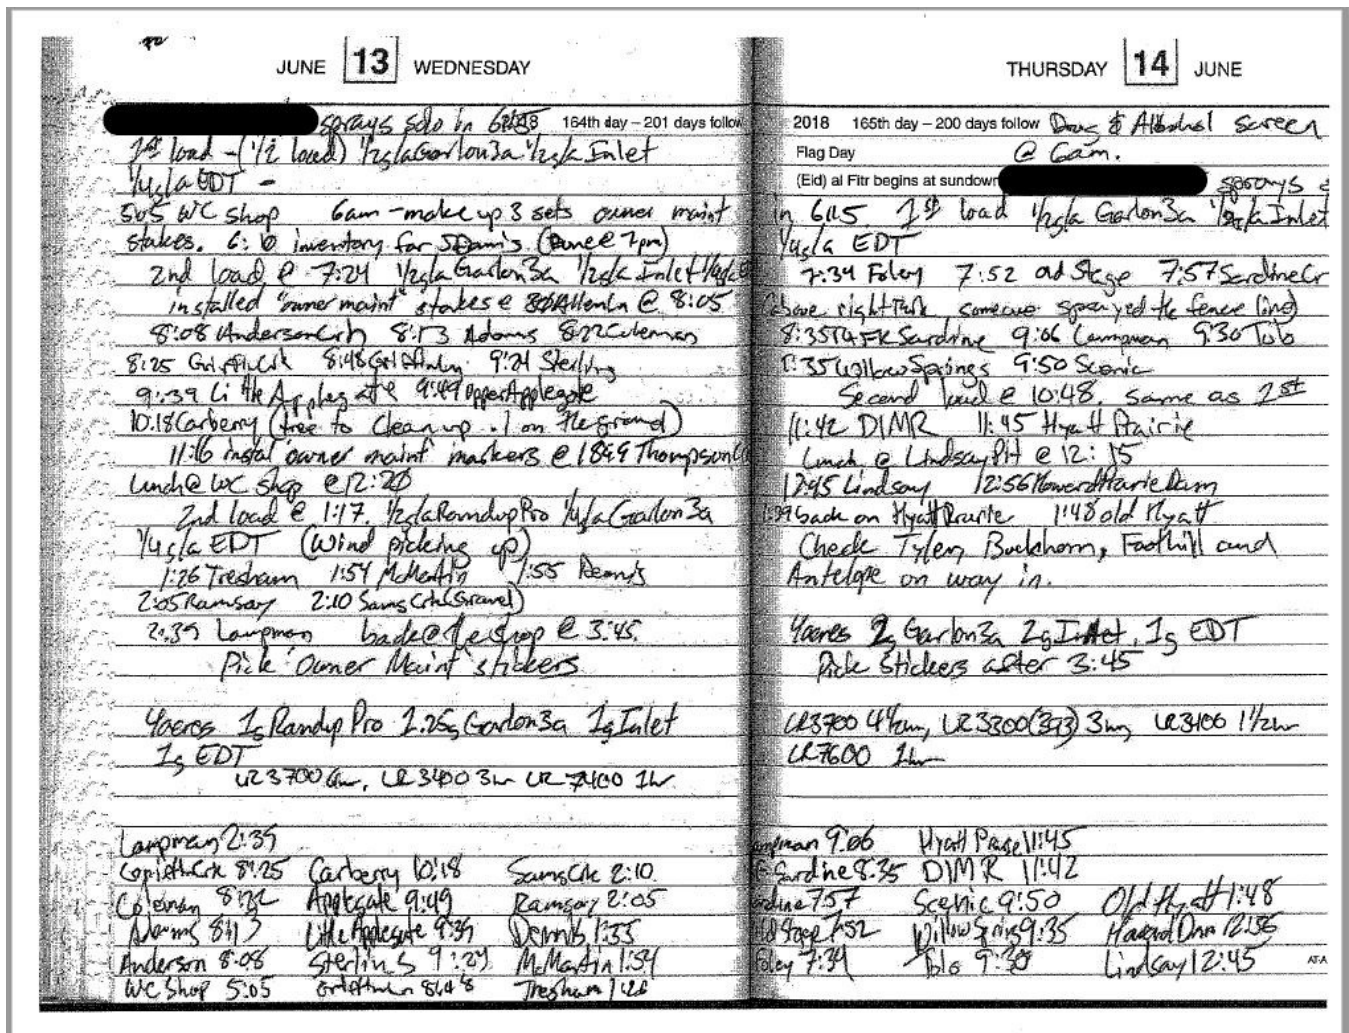 JUNE 13 WEDNESDAY
sprays solo in 6115 164th day – 201 days follow
1st load – (1/2 load) 1/2g/a Garlon3a 1/2g/a Inlet
1/4g/a EDT –
5:05 WC Shop 6am – make up 3 sets owner maint
stakes. 6:10 inventory for (Done @ 7pm)
2nd load @ 7:24 1/2g/a Garlon3a 1/2g/a Inlet 1/4g/a
installed "owner maint" stakes @ @ 8:05
8:08 AndersonCrk 8:13 Adams 8:22 Coleman
8:25 GriffinCrk 8:48 GriffinLn 9:24 Sterling
9:39 Little Applegate 9:49 UpperApplegate
10:18 Carberry (tree to clean up . 1 on the ground)
11:16 instal "owner maint" markers @ 1899 Thompson
Lunch @ WC Shop @ 12:20
2nd load @ 1:17. 1/2g/a RoundupPro 1/4g/a Garlon3a
1/4g/a EDT (Wind picking up)
1:26 Tresham 1:54 McMartin 1:55 Dennis
2:05 Ramsay 2:10 Sams Crk (Gravel)
2:39 Lampman back @ the shop @ 3:45.
Pick "Owner Maint" stickers
4acres 1g Randup Pro 1.25g Garlon3a 1g Inlet
1g EDT
LR3700 6hr, LR3400 3hr LR7400 1hr
Lampman 2:39
GriffinCrk 8:25 Carberry 10:18 SamsCrk 2:10
Coleman 8:22 Applegate 9:49 Ramsay 2:05
Adams 8:13 Little Applegate 9:39 Dennis 1:55
Anderson 8:08 Sterling 9:24 McMartin 1:54
WC Shop 5:05 Griffin Ln 8:48 Tresham 1:26
THURSDAY 14 JUNE
2018 165th day – 200 days follow Drug & Alcohol Screen
Flag Day @ 6am.
(Eid) al Fitr begins at sundown sprays
in 6115 1st load 1/2g/a Garlon3a 1/2g/a Inlet
1/4g/a EDT
7:34 Foley 7:52 Old Stage 7:57 SardineCr
(above right fork, someone sprayed the fence line)
8:35 Sardine 9:06 Lampman 9:30 Tolo
9:35 Willow Springs 9:50 Scenic
Second load @ 10:48. same as 1st
11:42 DIMR 11:45 Hyatt Prairie
Lunch @ Lindsay Pit @ 12:15
12:45 Lindsay 12:56 HowardPrairieDam
1:39 back on Hyatt Prairie 1:48 old Hyatt
Check Tyler, Buckhorn, Foothill and
Antelope on way in.
4acres 2g Garlon3a 2g Inlet, 1g EDT
Pick Stickers after 3:45
LR3700 4 1/2hr, LR3300(393) 3hr, LR3400 1 1/2hr
LR7600 1hr
Lampman 9:06 Hyatt Prairie 11:45
Sardine 8:35 DIMR 11:42
Sardine 7:57 Scenic 9:50 Old Hyatt 1:48
Old Stage 7:52 Willow Spring 9:35 Howard Dam 12:56
Foley 7:34 Tolo 9:30 Lindsay 12:45 AT-A